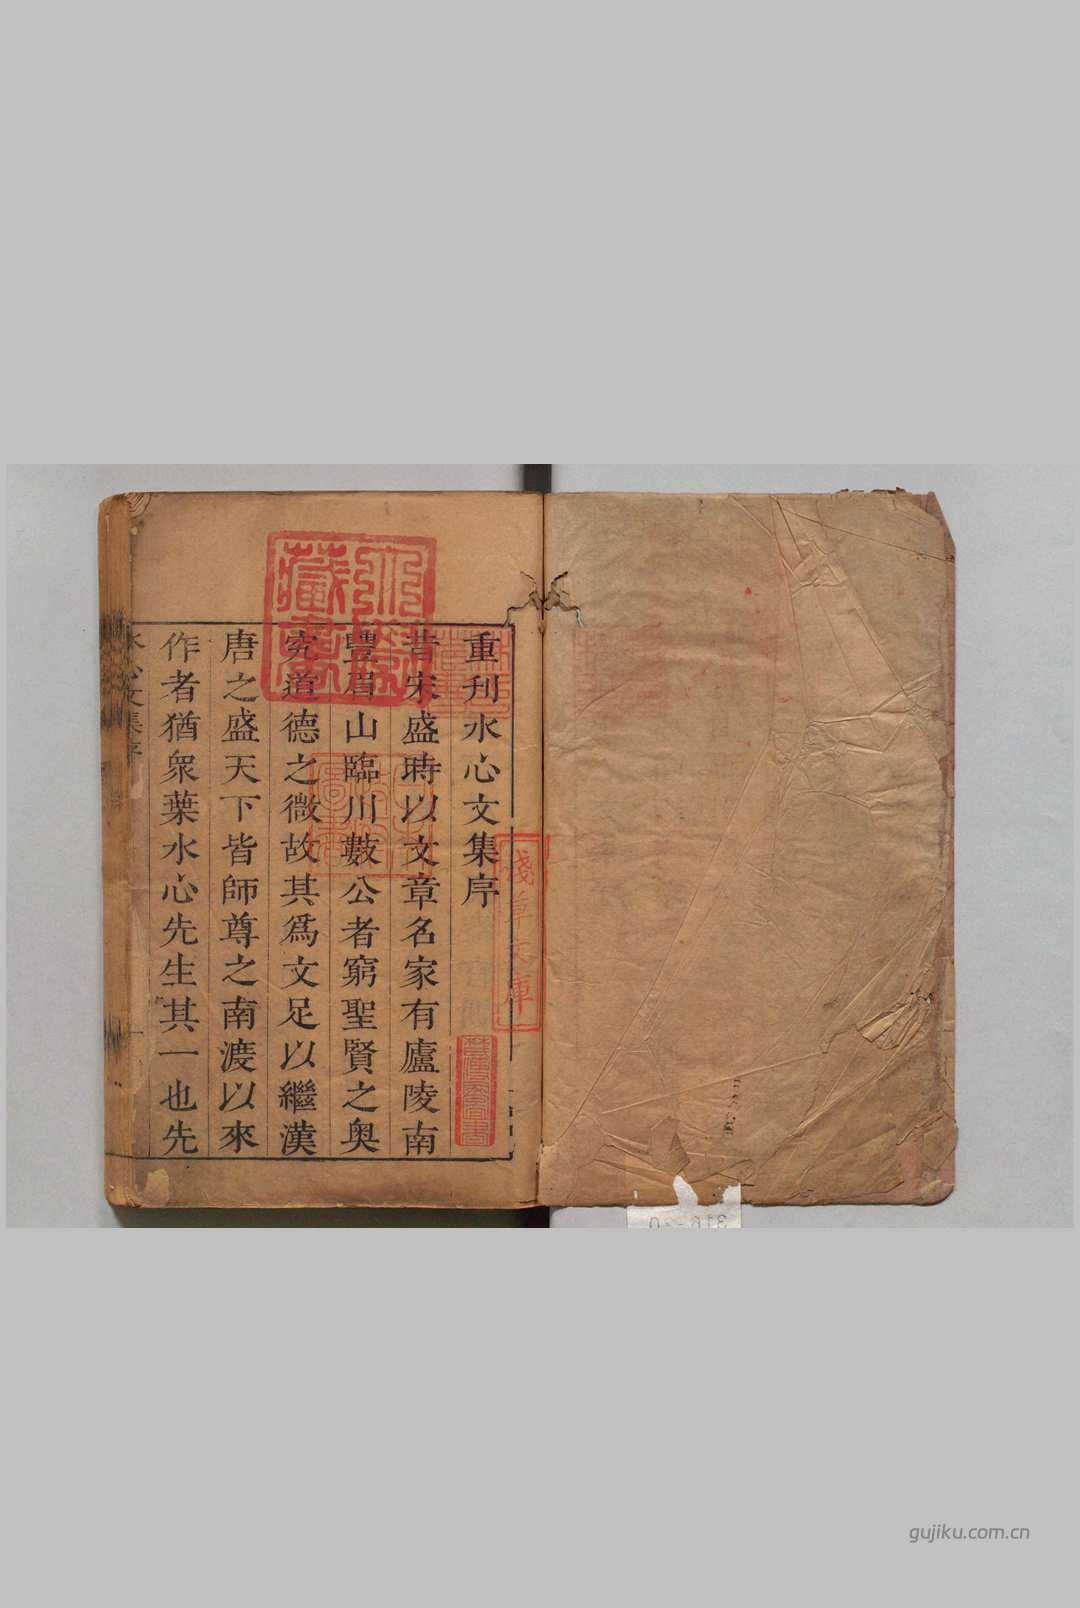 重刋水心文集序
昔宋盛時以文章名家有廬陵南
豐眉山臨川數公者窮聖賢之奧
究道德之微故其爲文足以繼漢
唐之盛天下皆師尊之南渡以來
作者猶衆葉水心先生其一也先
水心文集序
一
淺草文庫
藏書
gujiku.com.cn